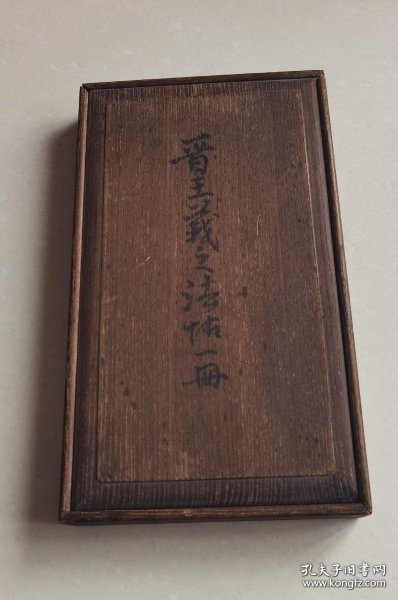 晋王羲之法帖一冊
孔夫子旧书网
www.kongfz.com